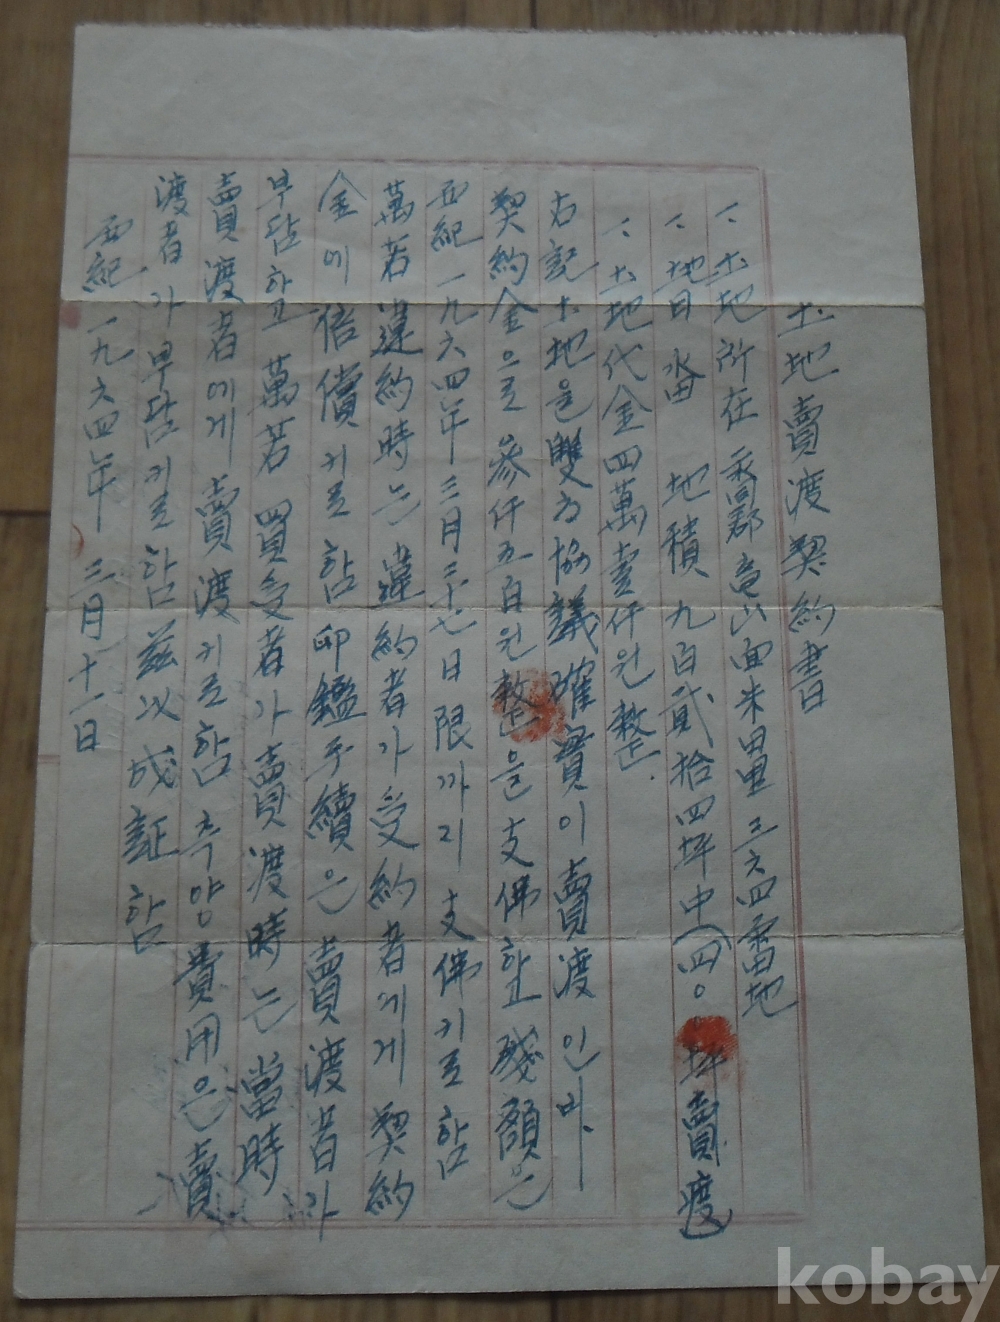 土地賣渡契約書
一、土地所在 高郡 面 里 三六四番地
一、地目 畓 地積 九百貳拾四坪中(四〇坪賣渡)
一、土地代金四萬壹仟원整.
右記土地을雙方協議確實이賣渡인바
契約金으로參仟五百원整을支佛하고殘額은
西紀一九六四年三月二十七日限까지支佛키로함
萬若違約時는違約者가受約者에게契約
金에倍償키로함印鑑手續은賣渡者가
부담하고萬若買受者가賣渡時는當時
賣渡者에게賣渡키로함측량費用은賣
渡者가부담키로함玆以成証함
西紀一九六四年三月十一日
kobay